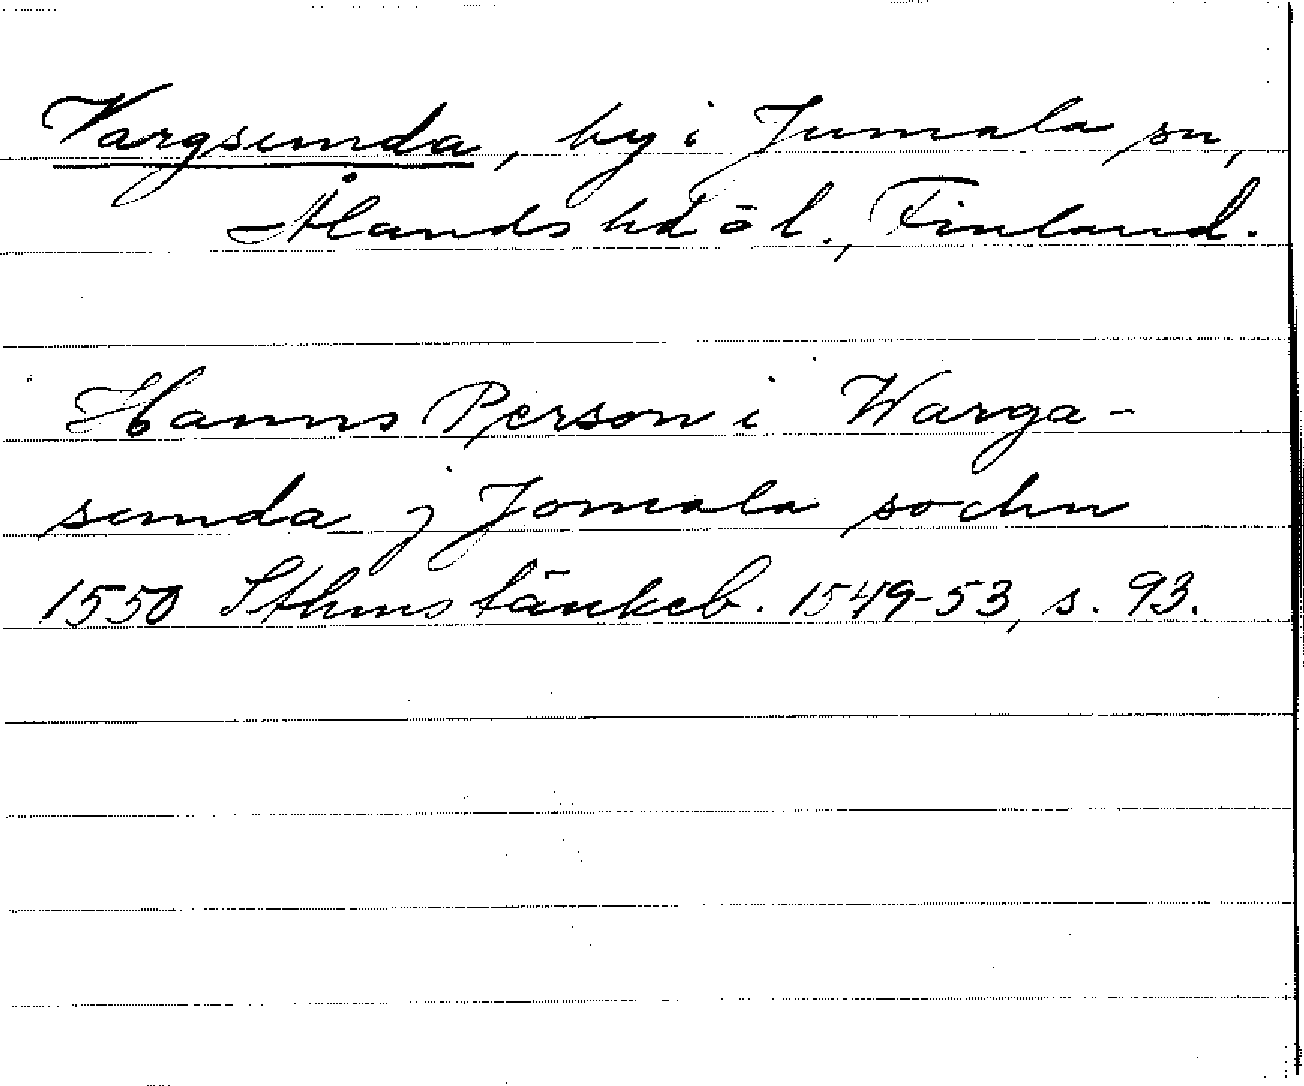 Vargsunda, by i Jumala sn,
Ålands hd o l., Finland.
Hanns Person i Warga-
sunda j Jomala sochn
1550 Sthms tänkeb. 1549-53, s. 93.